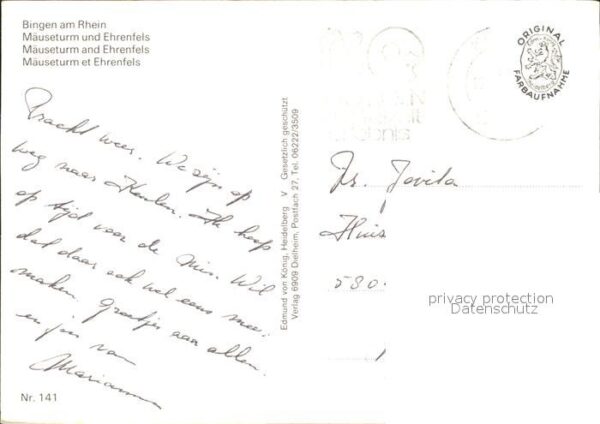 Bingen am Rhein
Mäuseturm und Ehrenfels
Mäuseturm and Ehrenfels
Mäuseturm et Ehrenfels
ORIGINAL
FARBAUFNAHME
Pracht weer. We zijn op
weg naar Keulen. Ik hoop
op tijd voor de Mis. Wil
dat daar ook wel eens mee
maken. Groetjes aan allen.
en van
Marianne
Edmund von König, Heidelberg V Gesetzlich geschützt
Verlag 6909 Dielheim, Postfach 27, Tel. 06222/3509
Zs. Jovita
Huis
580
privacy protection
Datenschutz
Nr. 141